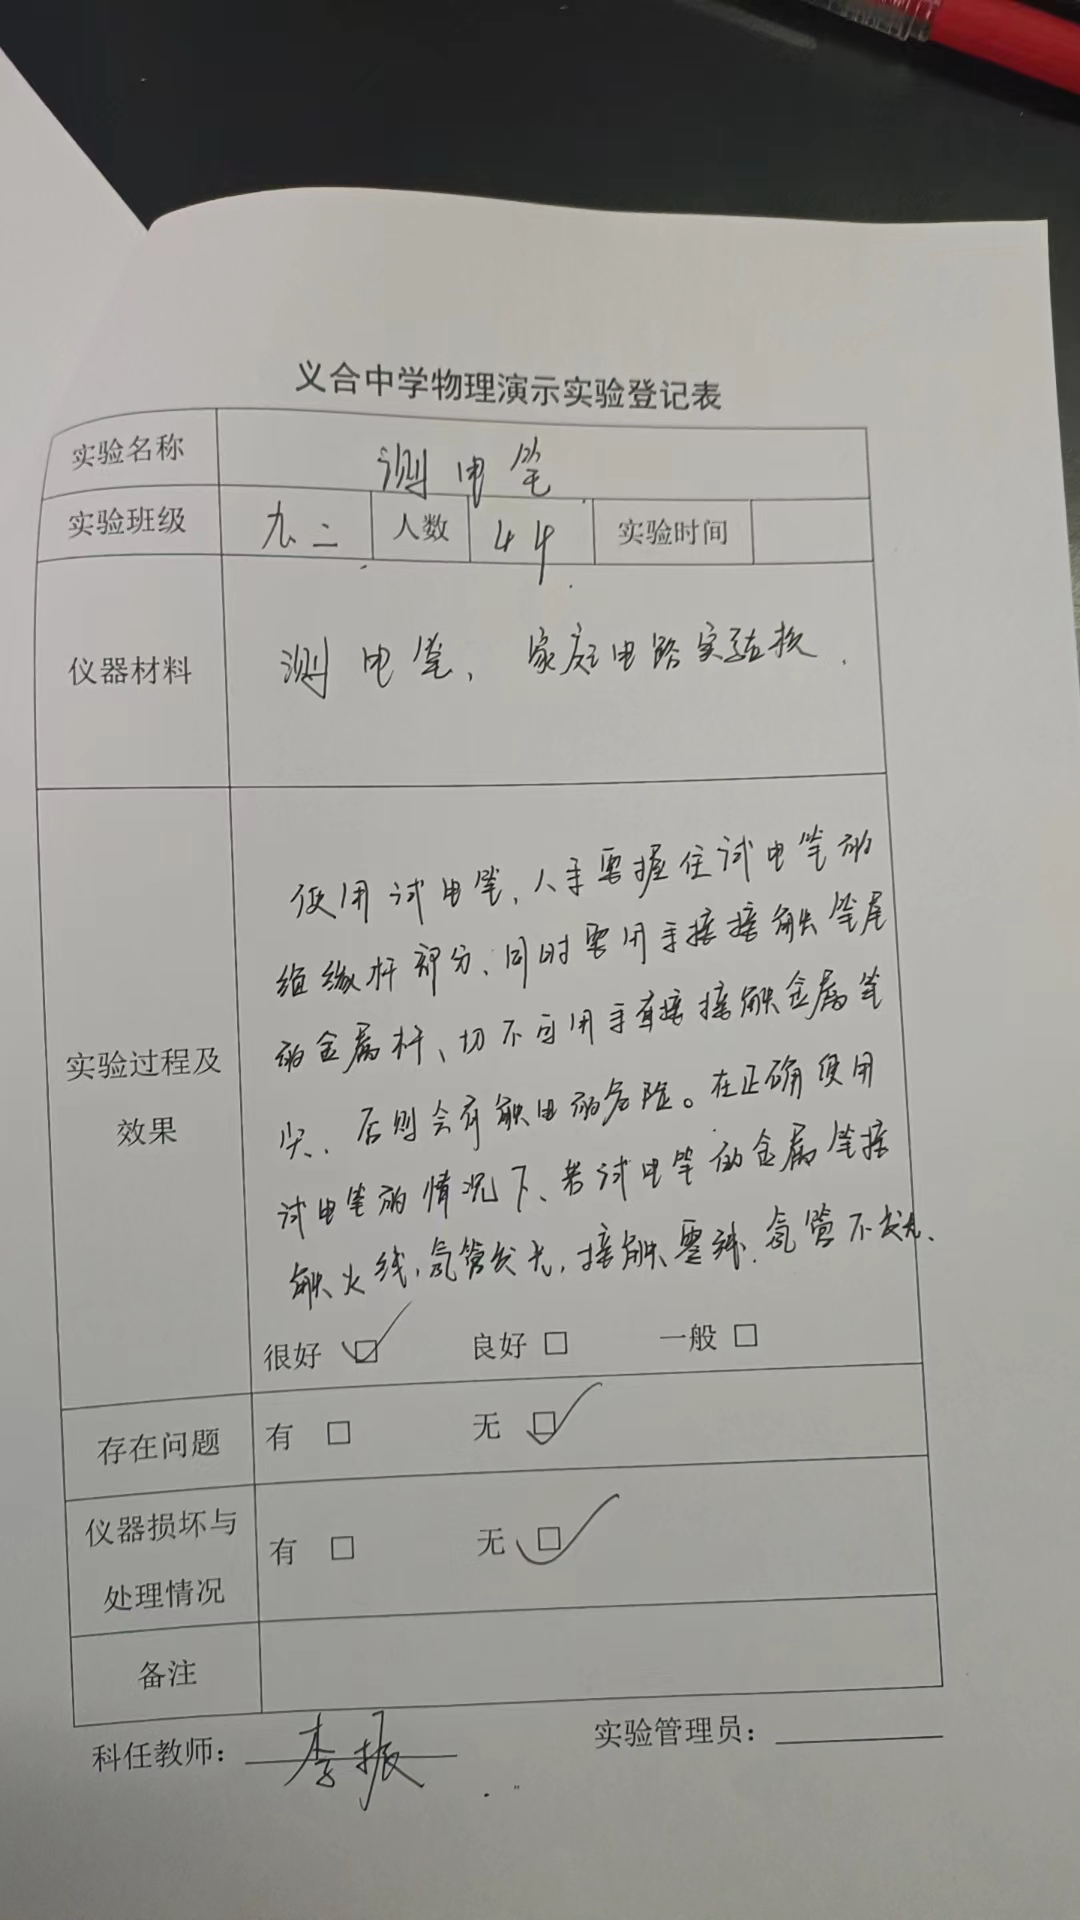 义合中学物理演示实验登记表
实验名称 测电笔
实验班级 九.二 人数 44 实验时间
仪器材料 测电笔、家庭电路实验板.
使用试电笔,人手要握住试电笔的
绝缘杆部分、同时要用手接接触笔尾
的金属杆、切不可用手直接接触金属笔
尖、否则会有触电的危险。在正确使用
试电笔的情况下、若试电笔的金属笔接
触火线,氖管发光,接触零线.氖管不发光、
实验过程及
效果
很好 ☑ 良好 □ 一般 □
存在问题 有 □ 无 ☑
仪器损坏与
处理情况
有 □ 无 ☑
备注
科任教师: 李振 实验管理员: